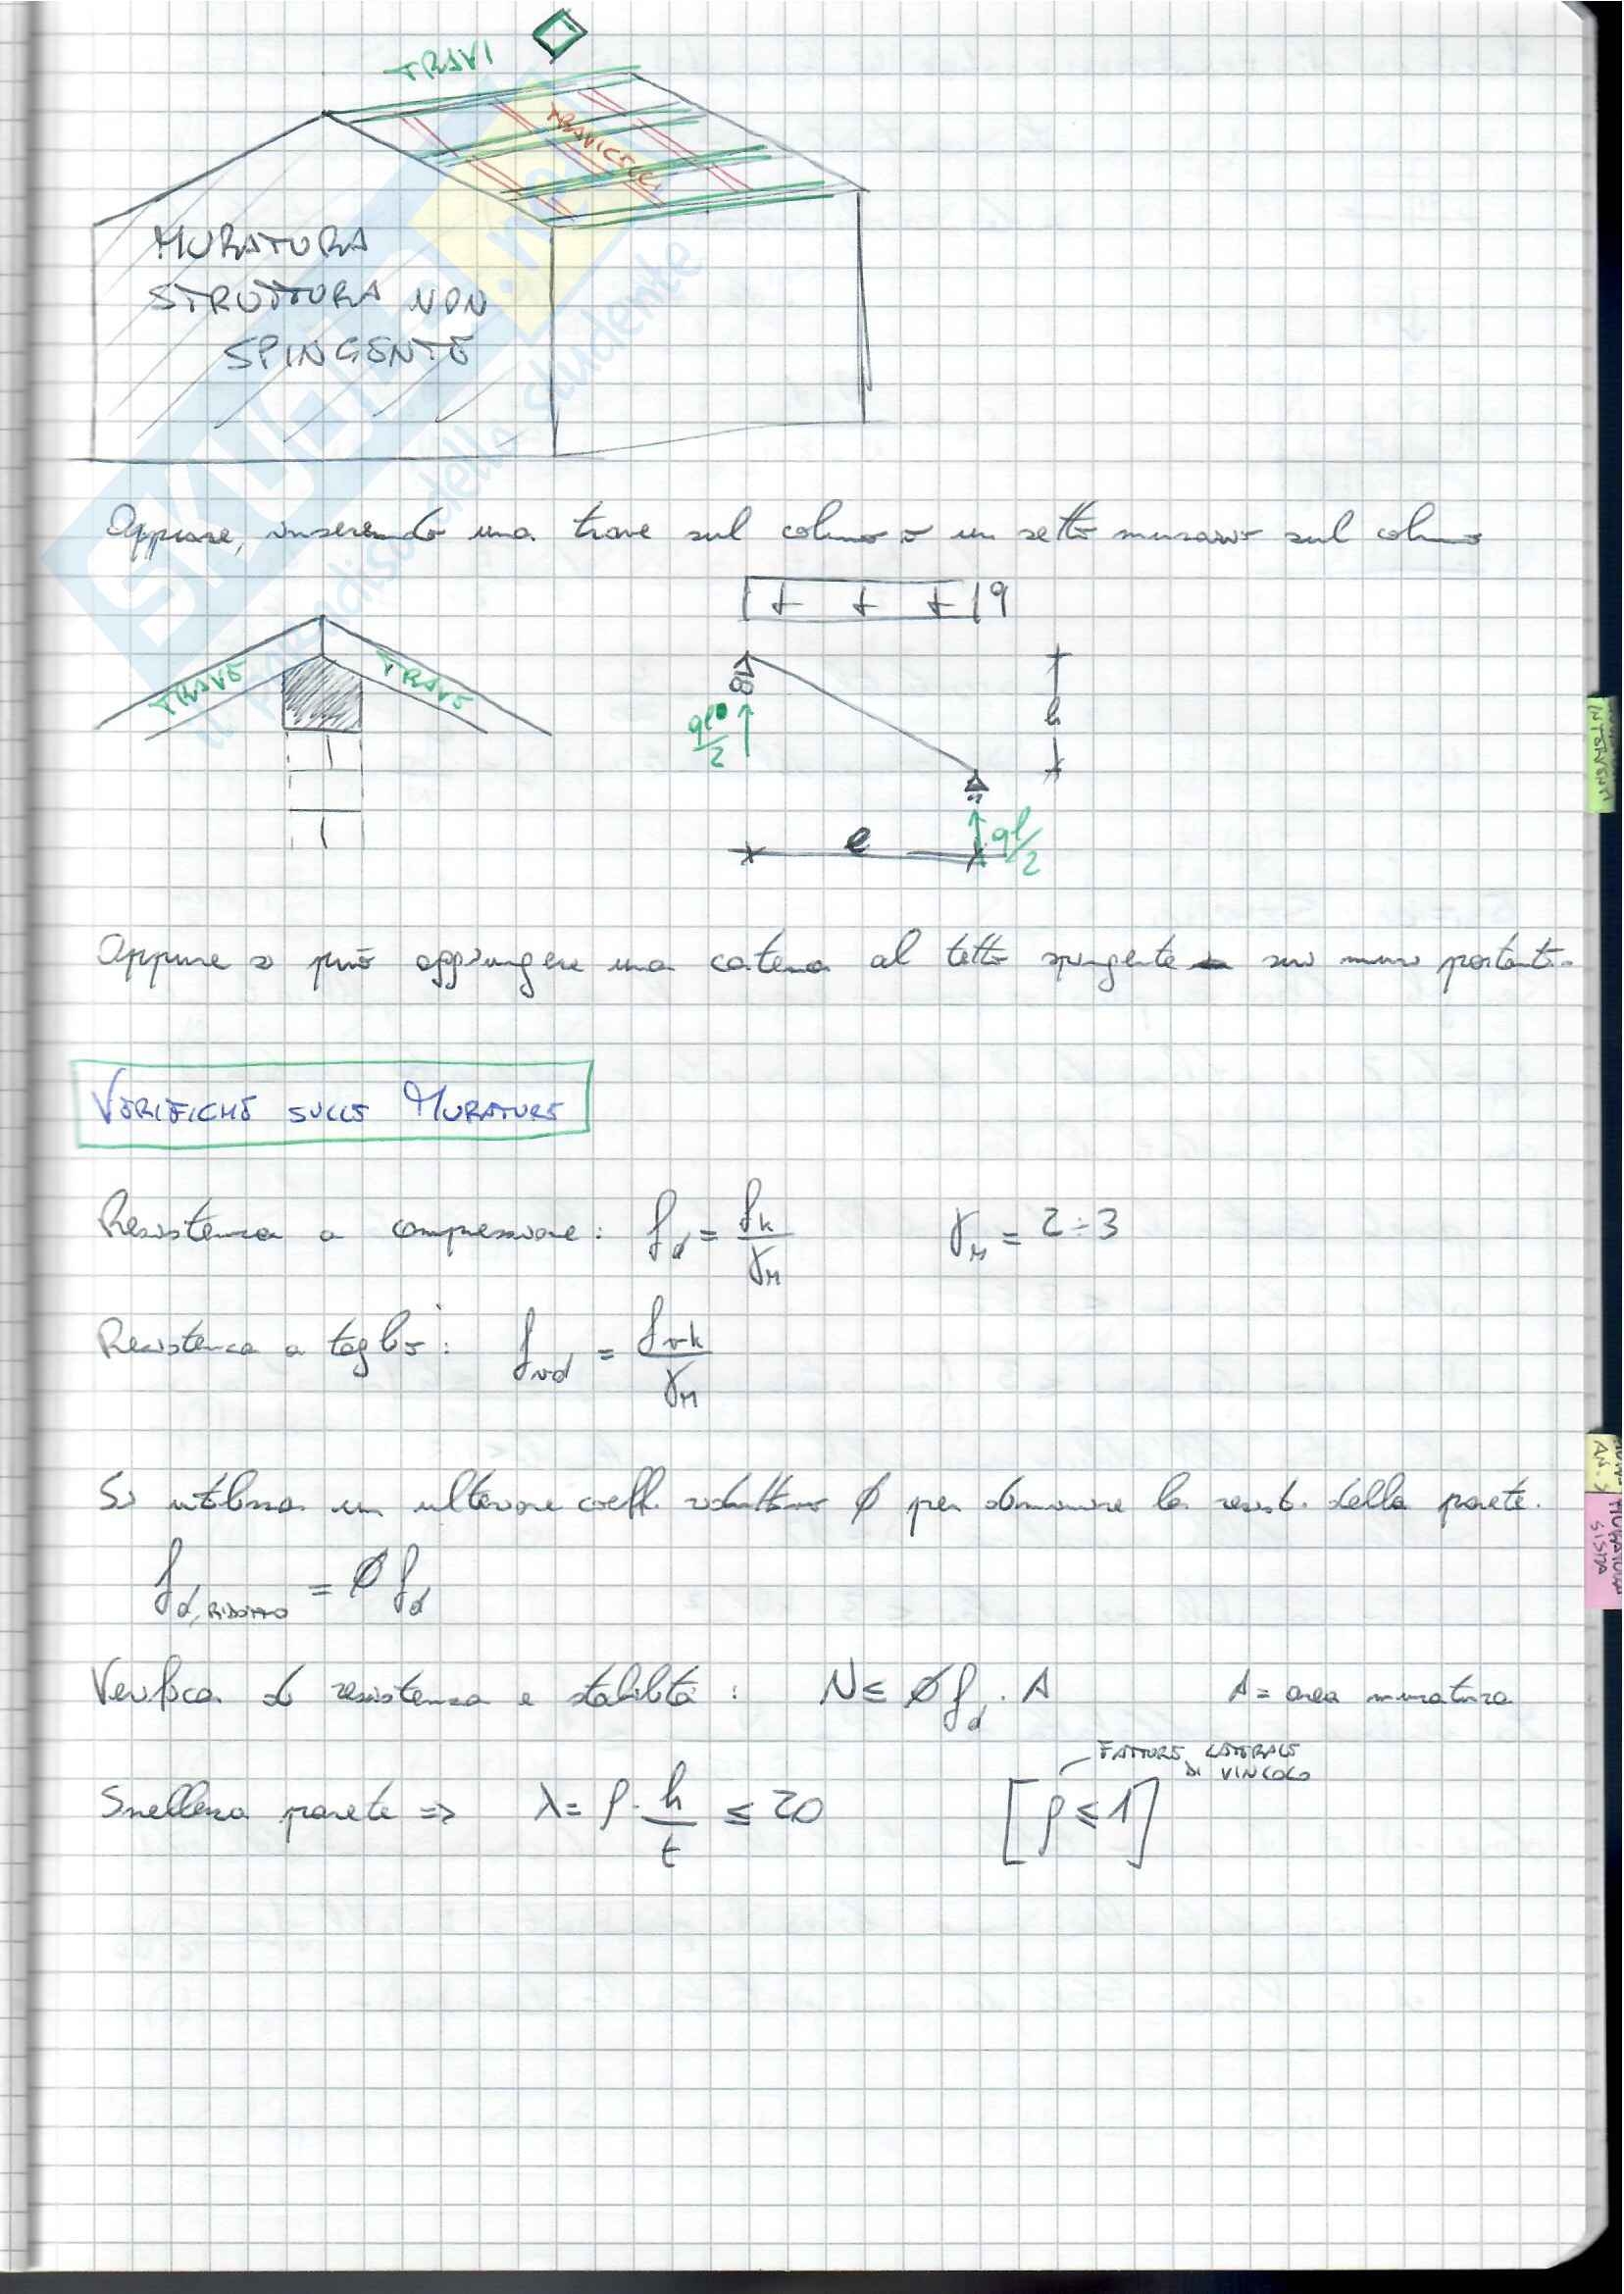 TRAVI
TRAVICELLI
MURATURA
STRUTTURA NON
SPINGENTE
Oppure, inserendo una trave sul colmo o un setto murario sul colmo
q
TRAVE TRAVE
ql/2
h
l
ql/2
Oppure si può aggiungere una catena al tetto spingente sui muri portanti.
INTERVENTI
VERIFICHE SULLE MURATURE
Resistenza a compressione: f_d = f_k/γ_M γ_M = 2÷3
Resistenza a taglio: f_vd = f_vk/γ_M
Si utilizza un ulteriore coeff. riduttivo Ø per diminuire la resist. della parete.
f_d,RIDOTTO = Ø f_d
Verifica di resistenza e stabilità: N ≤ Ø f_d · A A = area muratura
FATTORE LATERALE
DI VINCOLO
Snellezza parete => λ = ρ · h/t ≤ 20 [ρ ≤ 1]
SKUOLA.net
il paradiso dello studente